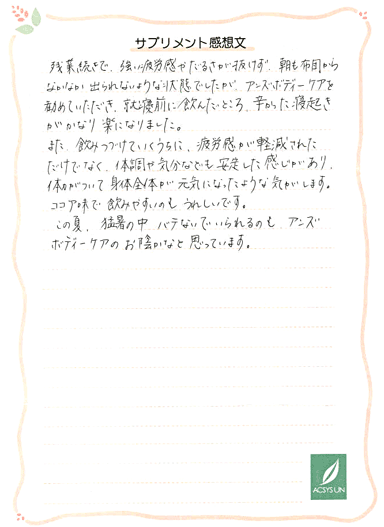 サプリメント感想文
残業続きで、強い疲労感やだるさが抜けず、朝も布団から
なかなか出られないような状態でしたが、アンズボディーケアを
勧めていただき、就寝前に飲んだところ、辛かった寝起き
がかなり楽になりました。
また、飲みつづけていくうちに、疲労感が軽減された
だけでなく、体調や気分なども安定した感じがあり、
体があついて身体全体が元気になったような気がします。
ココア味で飲みやすいのもうれしいです。
この夏、猛暑の中、バテないでいられるのも、アンズ
ボディーケアのお陰かなと思っています。
ACSYSUN